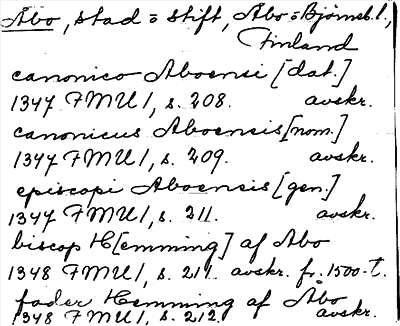 Abo, stad o stift, Abo o Bjørneb. l.,
Finland
canonico Aboensi [dat.]
1347 FMU 1, s. 208. avskr.
canonicus Aboensis [nom.]
1347 FMU 1, s. 209. avskr.
episcopi Aboensis [gen.]
1347 FMU 1, s. 211. avskr.
biscop H[emming] af Abo
1348 FMU 1, s. 211. avskr. fr. 1500-t.
fader Hemming af Åbo
1348 FMU 1, s. 212. avskr.